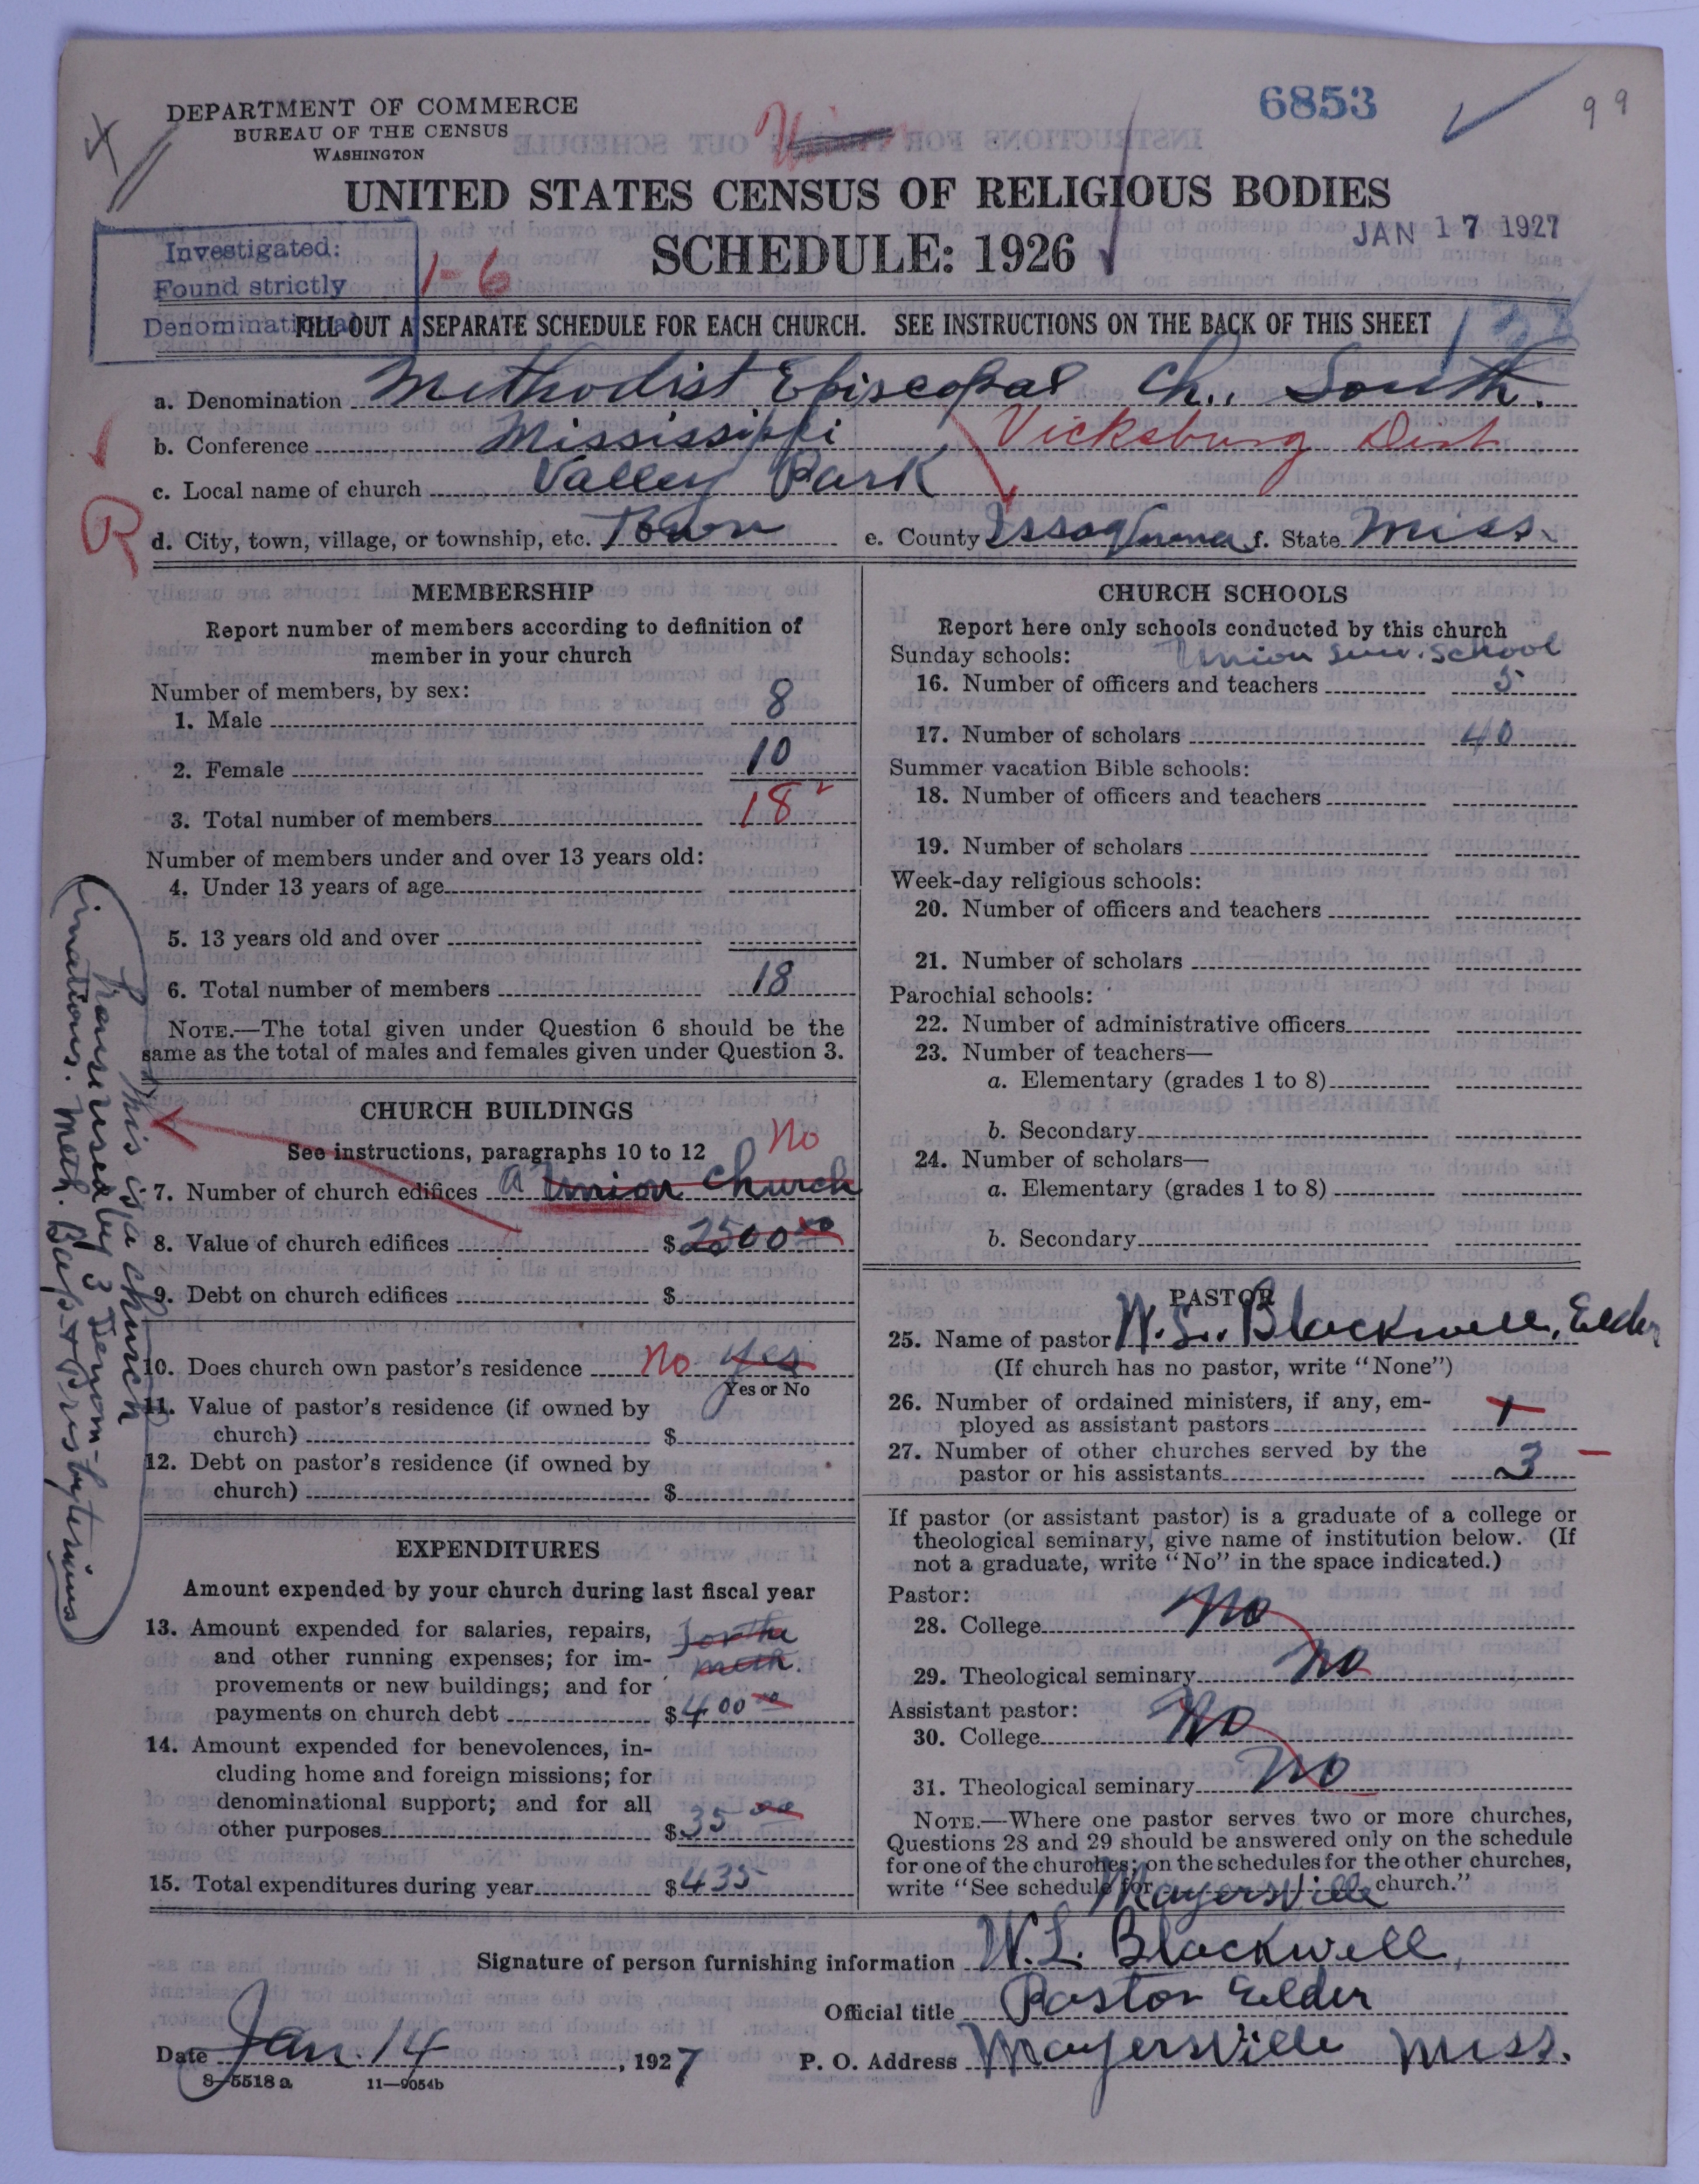 DEPARTMENT OF COMMERCE
BUREAU OF THE CENSUS
WASHINGTON
6853
99
UNITED STATES CENSUS OF RELIGIOUS BODIES
SCHEDULE: 1926
JAN 17 1927
Investigated:
Found strictly
Denominational
1-6
FILL OUT A SEPARATE SCHEDULE FOR EACH CHURCH. SEE INSTRUCTIONS ON THE BACK OF THIS SHEET
a. Denomination Methodist Episcopal Ch., South.
b. Conference Mississippi, Vicksburg Dist
c. Local name of church Valley Park
R
d. City, town, village, or township, etc. Town e. County Issaquena f. State Miss.
MEMBERSHIP
Report number of members according to definition of
member in your church
Number of members, by sex:
1. Male 8
2. Female 10
3. Total number of members 18
Number of members under and over 13 years old:
4. Under 13 years of age
5. 13 years old and over
6. Total number of members 18
NOTE.—The total given under Question 6 should be the
same as the total of males and females given under Question 3.
CHURCH BUILDINGS
See instructions, paragraphs 10 to 12 No
7. Number of church edifices a Union Church
8. Value of church edifices $2500 00
9. Debt on church edifices $
10. Does church own pastor's residence No Yes
Yes or No
11. Value of pastor's residence (if owned by
church) $
12. Debt on pastor's residence (if owned by
church) $
This is a church
house used by 3 Denom-
inations. Meth. Bapt. & Presbyterians
EXPENDITURES
Amount expended by your church during last fiscal year
13. Amount expended for salaries, repairs, for the
and other running expenses; for im- meth.
provements or new buildings; and for
payments on church debt $400 00
14. Amount expended for benevolences, in-
cluding home and foreign missions; for
denominational support; and for all
other purposes $35 00
15. Total expenditures during year $435
CHURCH SCHOOLS
Report here only schools conducted by this church
Sunday schools: Union Sun. School
16. Number of officers and teachers 5
17. Number of scholars 40
Summer vacation Bible schools:
18. Number of officers and teachers
19. Number of scholars
Week-day religious schools:
20. Number of officers and teachers
21. Number of scholars
Parochial schools:
22. Number of administrative officers
23. Number of teachers—
a. Elementary (grades 1 to 8)
b. Secondary
24. Number of scholars—
a. Elementary (grades 1 to 8)
b. Secondary
PASTOR
25. Name of pastor W. L. Blackwell, Elder
(If church has no pastor, write "None")
26. Number of ordained ministers, if any, em-
ployed as assistant pastors 1
27. Number of other churches served by the
pastor or his assistants 3
If pastor (or assistant pastor) is a graduate of a college or
theological seminary, give name of institution below. (If
not a graduate, write "No" in the space indicated.)
Pastor:
28. College No
29. Theological seminary No
Assistant pastor:
30. College No
31. Theological seminary No
NOTE.—Where one pastor serves two or more churches,
Questions 28 and 29 should be answered only on the schedule
for one of the churches; on the schedules for the other churches,
write "See schedule for Mayersville church."
Signature of person furnishing information W. L. Blackwell,
Official title Pastor Elder
Date Jan. 14, 1927 P. O. Address Mayersville Miss.
8-5518 a 11-9054b